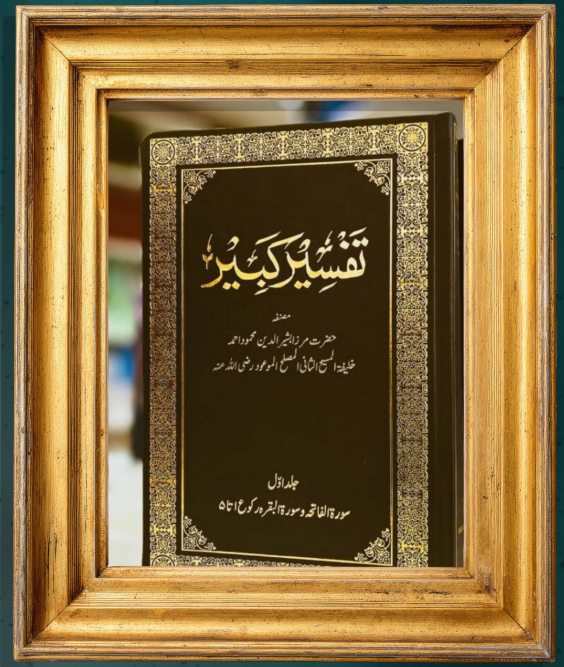 تَفْسِیْرِ کَبِیْر
مصنفہ
حضرت مرزا بشیر الدین محمود احمد
خلیفۃ المسیح الثانی المصلح الموعود رضی اللہ عنہ
جلد اوّل
سورۃ الفاتحہ و سورۃ البقرہ رکوع ۱ تا ۵